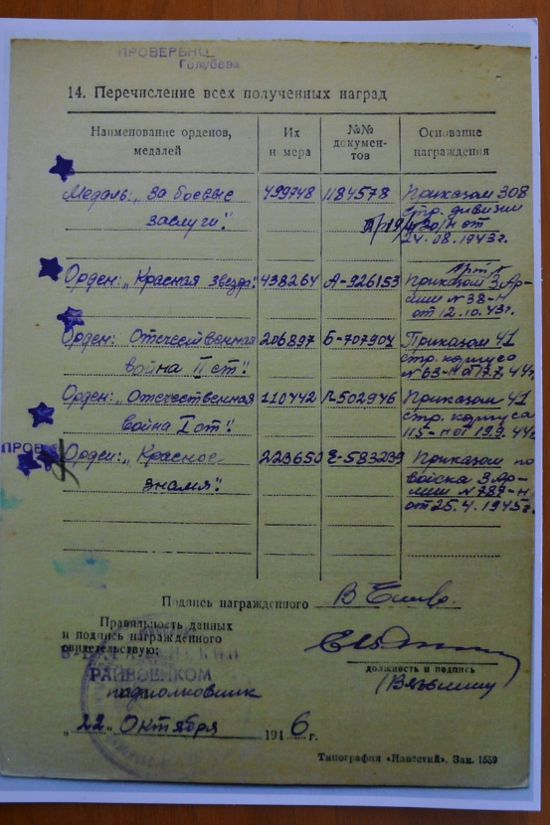 ПРОВЕРЕНО
Голубева
14. Перечисление всех полученных наград
Наименование орденов, медалей
Их номера
№№ документов
Основание награждения
Медаль: „За боевые заслуги". 499748 1184578 Приказом 308 стр. дивизии от 24.08.1943г.
Орден: „Красная звезда". 438264 А-926153 Приказом 3 Армии №38-н от 12.10.43г.
Орден: Отечественная война II ст". 206897 Б-707904 Приказом 41 стр. корпуса №63-н
Орден: „Отечественная война I ст". 110442 502946 Приказом 41 стр. корпуса 115-н от 19.9.44г
ПРОВ
Орден: „Красное знамя". 223650 Е-583239 Приказом по войска 3 Армии №789-н от 25.4.1945г.
Подпись награжденного
Правильность данных
и подпись награжденного
свидетельствую:
РАЙВОЕНКОМ
подполковник
должность и подпись
„22" Октября 1946 г.
Типография «Известий». Зак. 1559